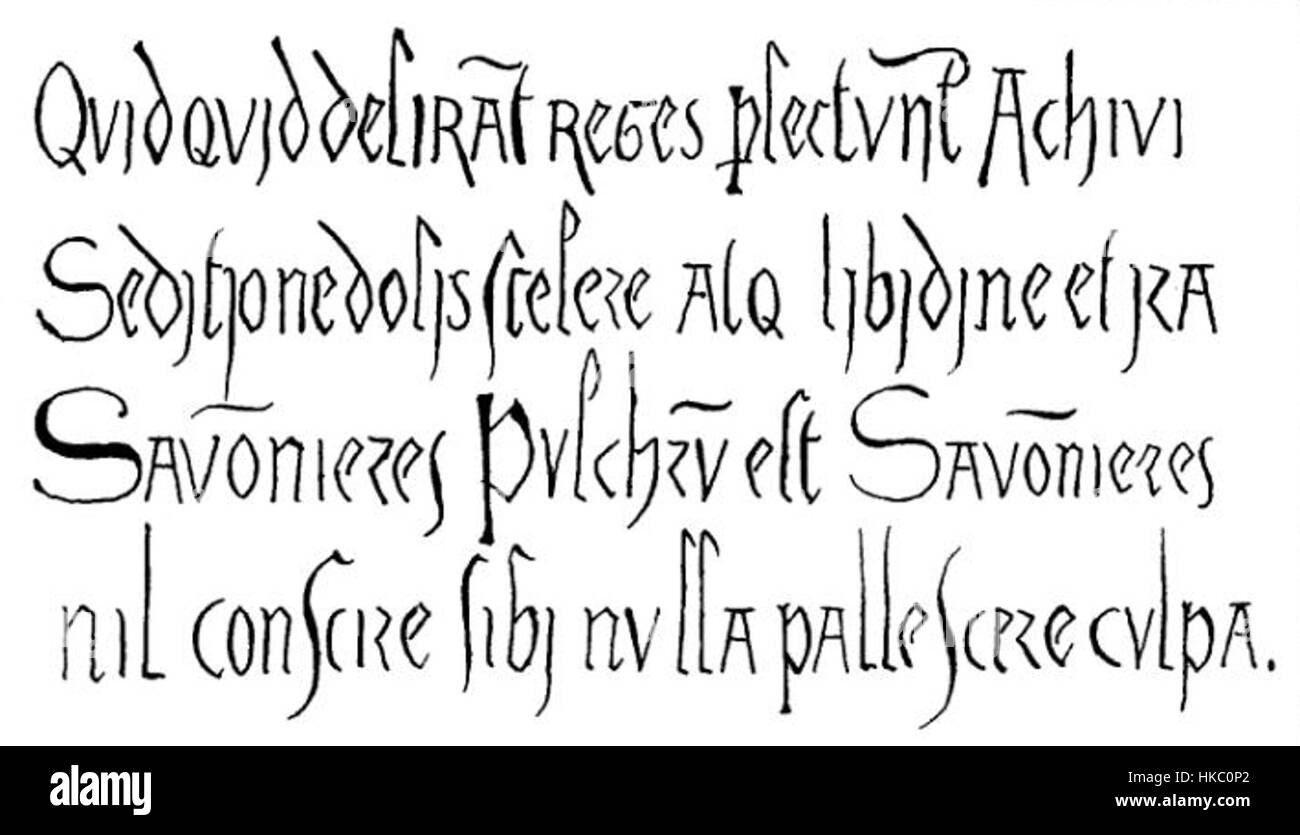 Qvid qvid delirāt reges plectvn̄t Achivi
Seditione dolis scelere atq libidine et ira
Savōnieres Pvlchrv̄ est Savōnieres
nil conscire sibi nvlla pallescere cvlpa.
alamy
Image ID: HKC0P2
www.alamy.com